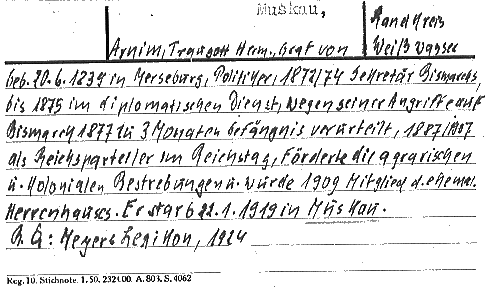 Muskau,
Landkreis
Arnim, Traugott Herm., Graf von
Weißwasser
Geb. 20.6.1839 in Merseburg, Politiker, 1872/74 Sekretär Bismarcks,
bis 1875 im diplomatischen Dienst, wegen seiner Angriffe auf
Bismarck 1877 zu 3 Monaten Gefängnis verurteilt, 1887/1907
als Reichsparteiler im Reichstag, förderte die agrarischen
u. Kolonialen Bestrebungen u. wurde 1909 Mitglied d. ehemal.
Herrenhauses. Er starb 22.1.1919 in Muskau.
B.Q: Meyers Lexikon, 1924
Reg. 10. Stichnote. 1. 50. 2321.00. A. 803. S. 4062